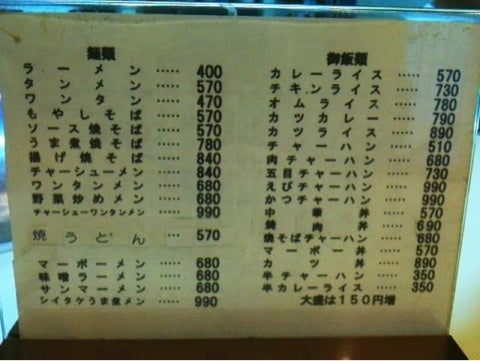 麺類
ラーメン ‥‥‥ 400
タンメン ‥‥‥ 570
ワンタン ‥‥‥ 470
もやしそば ‥‥‥ 570
ソース焼そば ‥‥‥ 570
うま煮焼そば ‥‥‥ 780
揚げ焼そば ‥‥‥ 840
チャーシューメン ‥‥‥ 840
ワンタンメン ‥‥‥ 680
野菜炒めメン ‥‥‥ 680
チャーシューワンタンメン ‥‥‥ 990
焼うどん ‥‥‥ 570
マーボーメン ‥‥‥ 680
味噌ラーメン ‥‥‥ 680
サンマーメン ‥‥‥ 680
シイタケうま煮メン ‥‥‥ 990
御飯類
カレーライス ‥‥‥ 570
チキンライス ‥‥‥ 730
オムライス ‥‥‥ 780
カツカレー ‥‥‥ 790
カツライス ‥‥‥ 890
チャーハン ‥‥‥ 510
肉チャーハン ‥‥‥ 680
五目チャーハン ‥‥‥ 730
えびチャーハン ‥‥‥ 990
かつチャーハン ‥‥‥ 990
中華丼 ‥‥‥ 570
焼肉丼 ‥‥‥ 690
焼そばチャーハン ‥‥‥ 680
マーボー丼 ‥‥‥ 570
カツ丼 ‥‥‥ 890
半チャーハン ‥‥‥ 350
半カレーライス ‥‥‥ 350
大盛は150円増